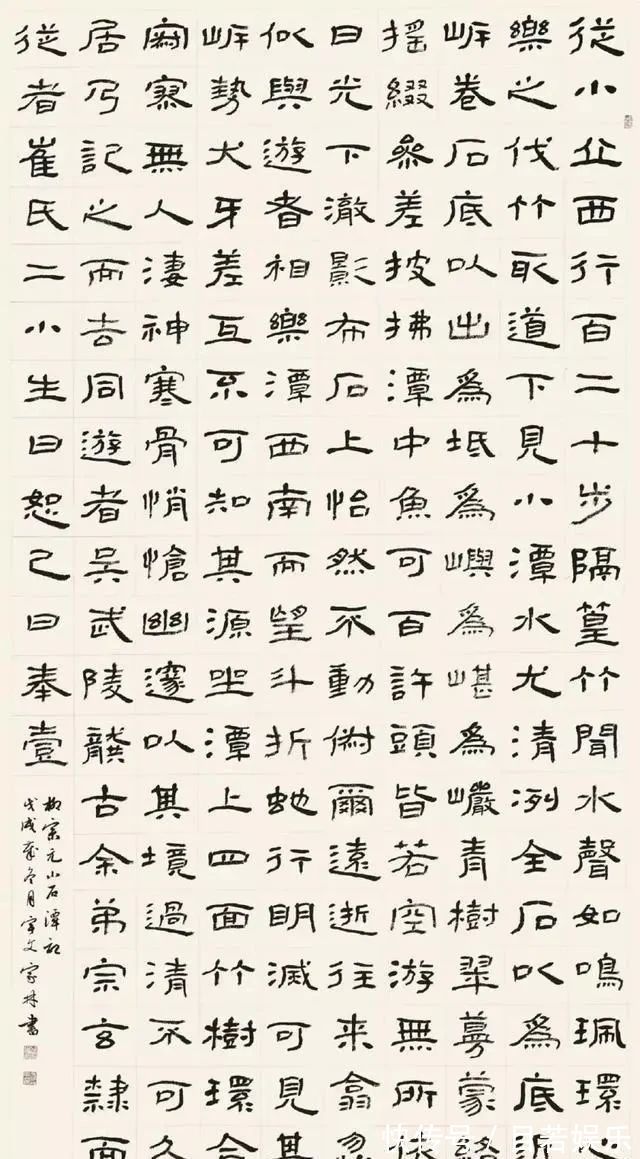 從小丘西行百二十步隔篁竹聞水聲如鳴珮環心
樂之伐竹取道下見小潭水尤清冽全石以為底近
岸卷石底以出為坻為嶼為嵁為巖青樹翠蔓蒙絡
搖綴參差披拂潭中魚可百許頭皆若空游無所依
日光下澈影布石上怡然不動俶爾遠逝往来翕忽
似與遊者相樂潭西南而望斗折虵行明滅可見其
岸勢犬牙差互不可知其源坐潭上四面竹樹環合
寂寥無人淒神寒骨悄愴幽邃以其境過清不可久
居乃記之而去同遊者吳武陵龔古余弟宗玄隸而
從者崔氏二小生曰恕己曰奉壹
柳宗元小石潭記
戊戌年冬月宇文家林書
快传号/日若娱乐